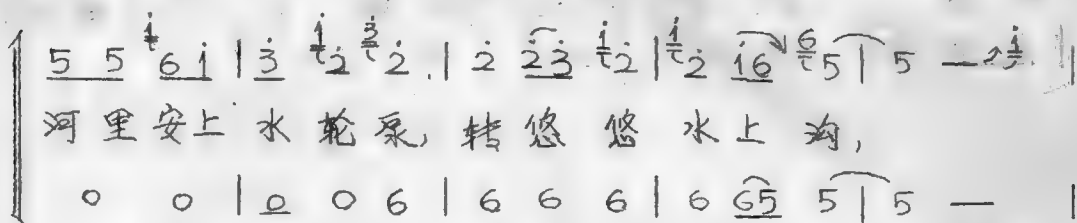 5 5 6 i | 3 2 2 | 2 2 3 2 | 2 i 6 5 | 5 —
河里安上水轮泵,转悠悠水上沟,
0 0 | 0 0 6 | 6 6 6 | 6 65 5 | 5 — |